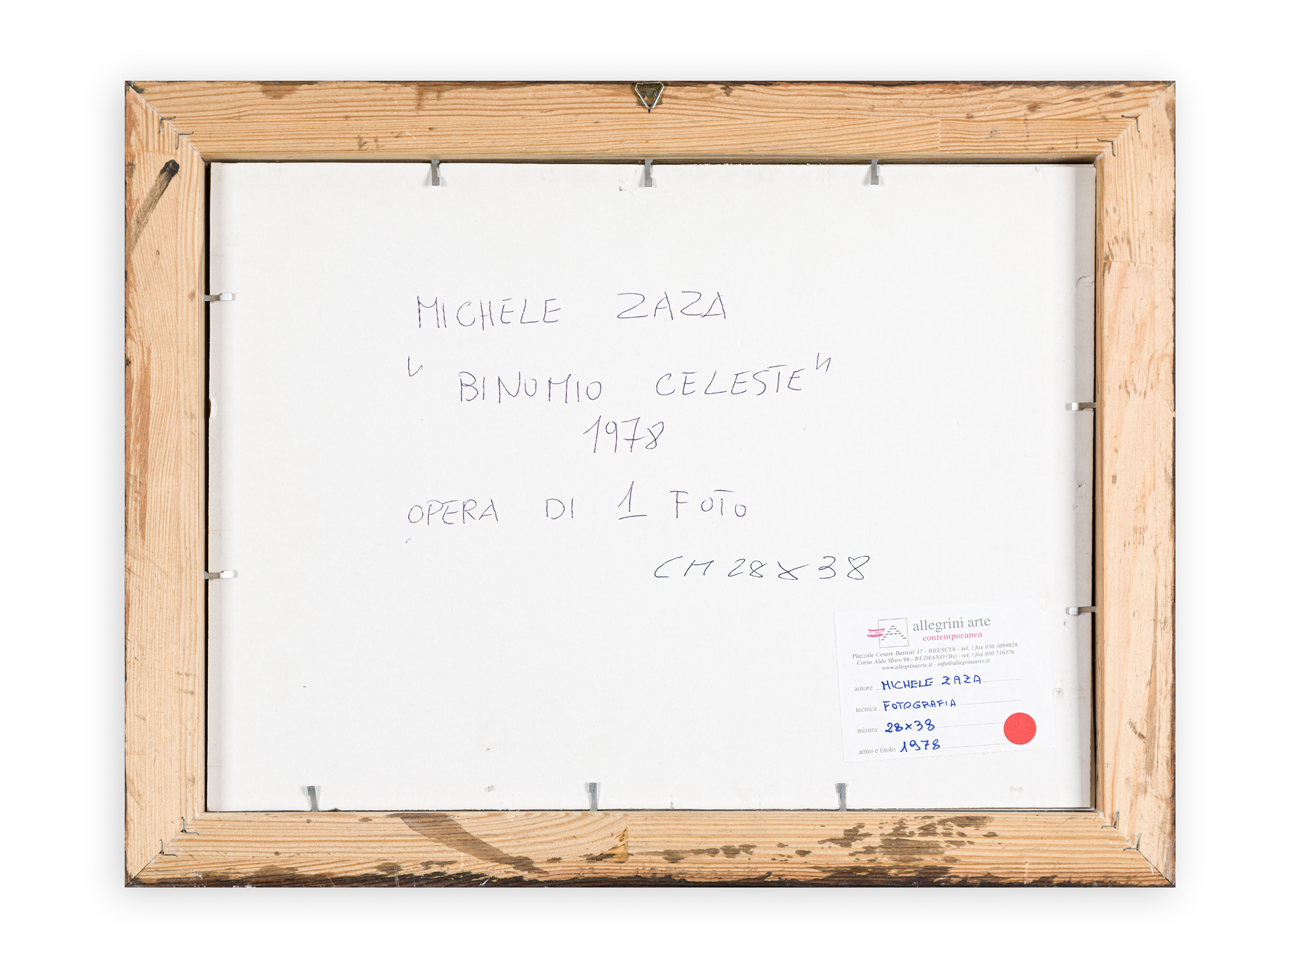 MICHELE ZAZA
"BINOMIO CELESTE"
1978
OPERA DI 1 FOTO
CM 28x38
allegrini arte
contemporanea
Piazzale Cesare Battisti 17 - BRESCIA - tel. / fax 030 3099828
Corso Aldo Moro 96 - RUDIANO (Bs) - tel. / fax 030 716376
www.allegriniarte.it - info@allegriniarte.it
autore MICHELE ZAZA
tecnica FOTOGRAFIA
misura 28x38
anno e titolo 1978